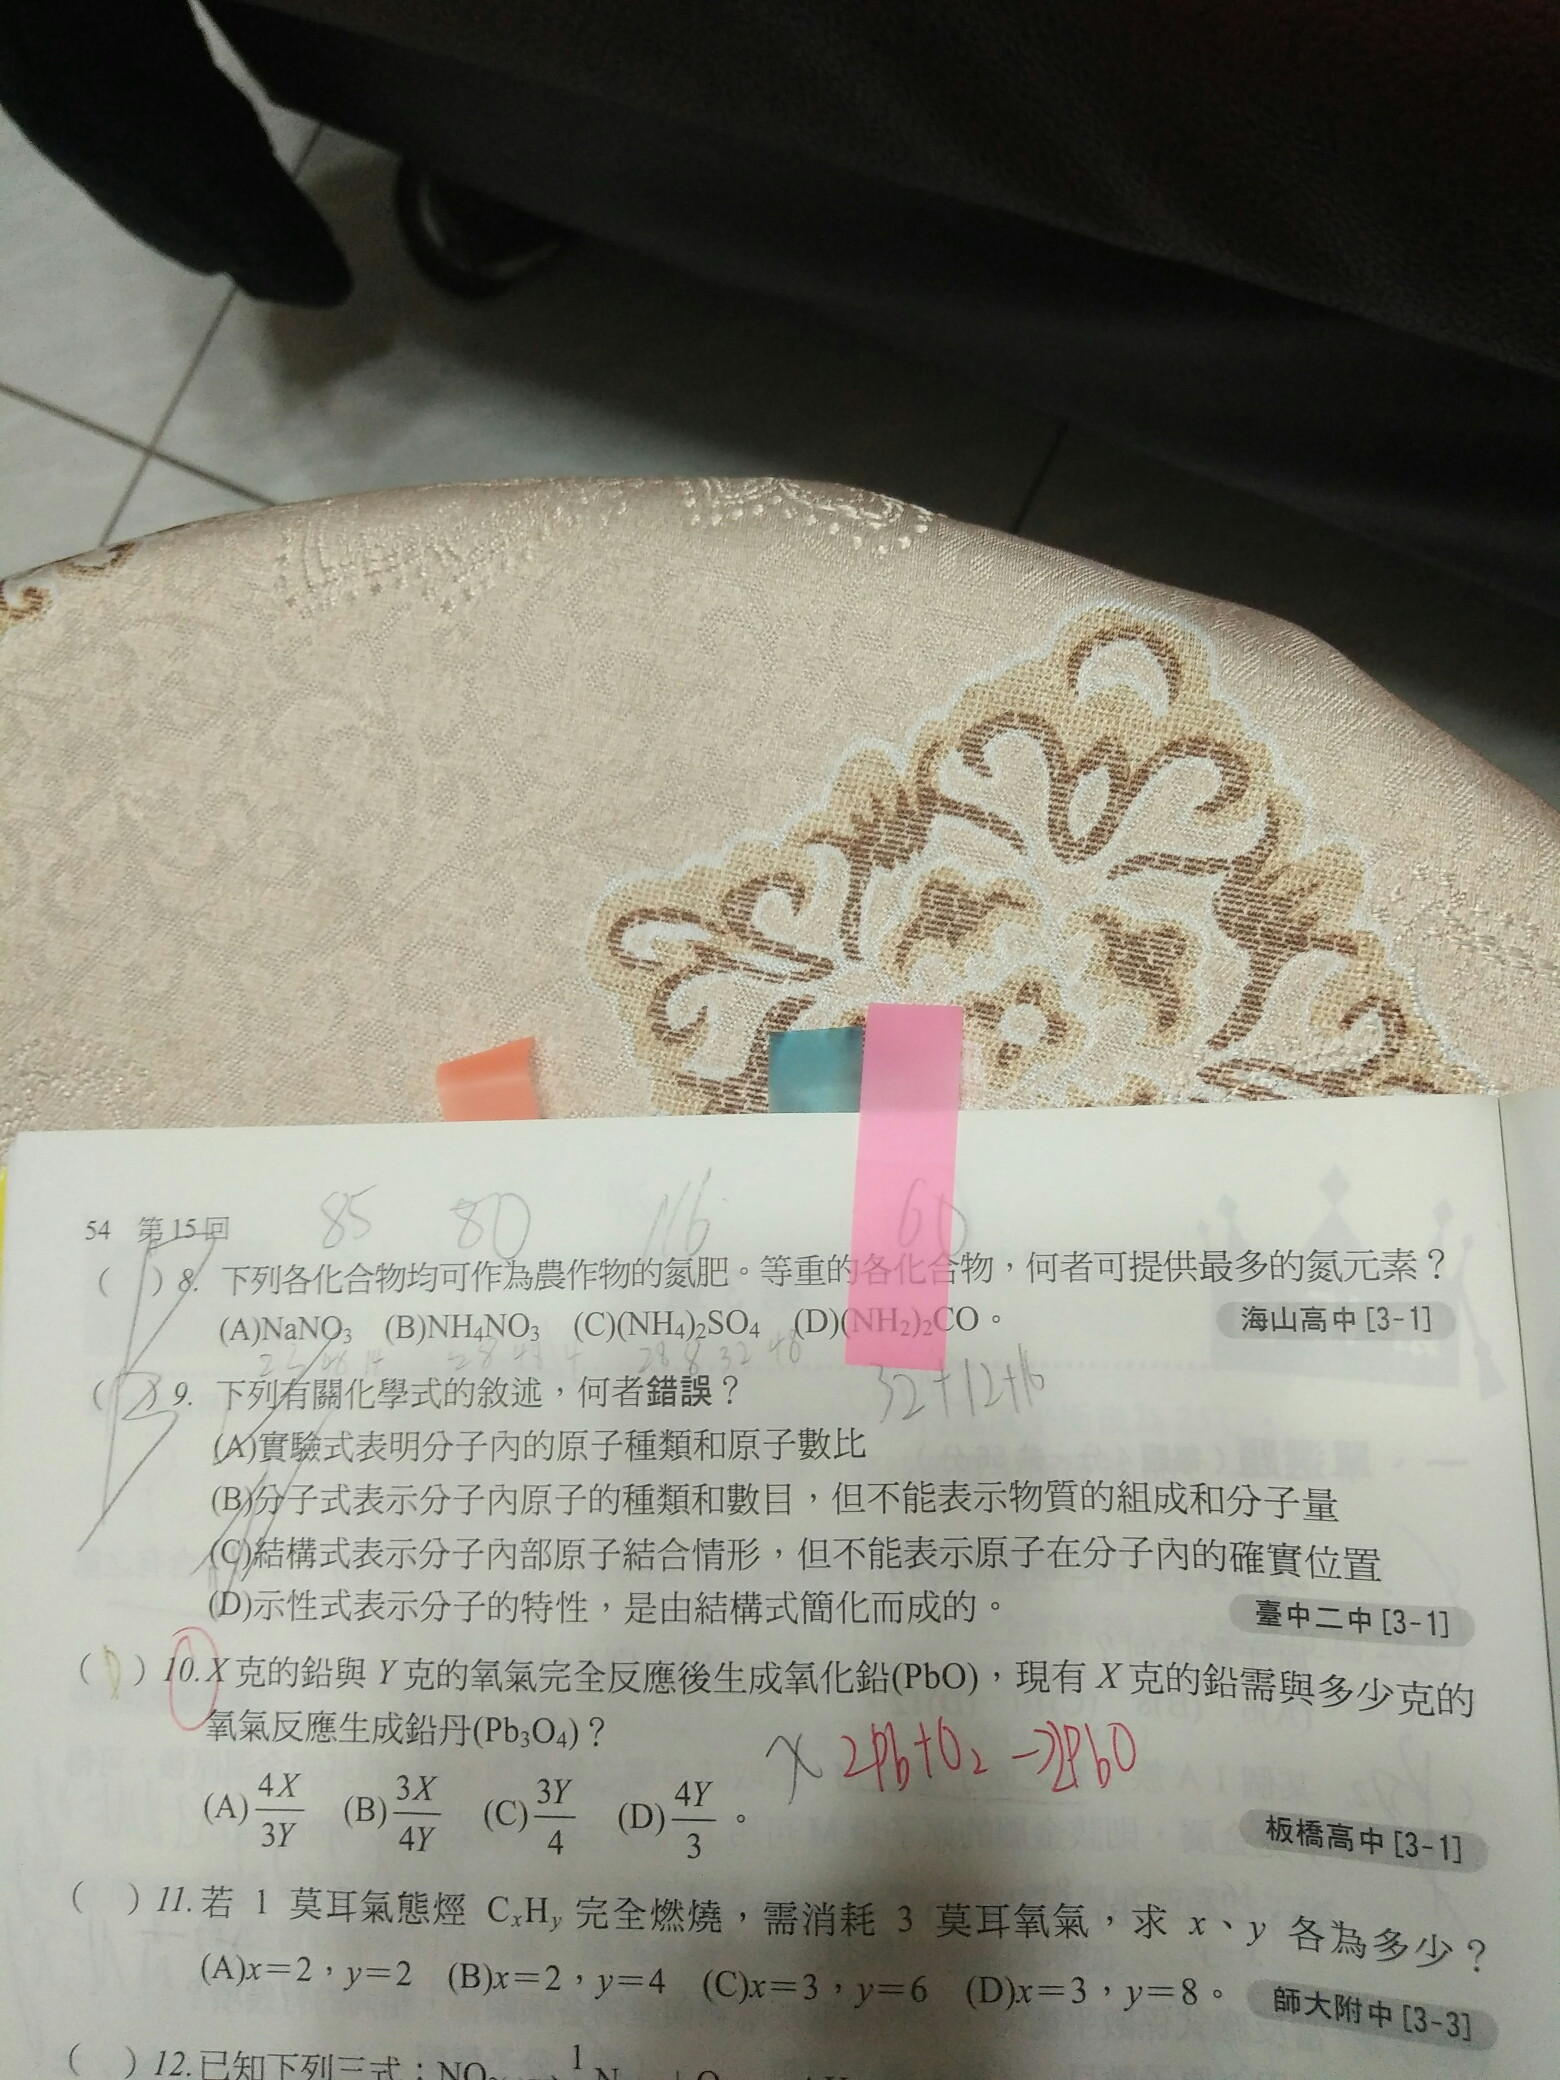 85 80 116 60
54 第15回
( )8. 下列各化合物均可作為農作物的氮肥。等重的各化合物，何者可提供最多的氮元素？
(A)NaNO₃ (B)NH₄NO₃ (C)(NH₄)₂SO₄ (D)(NH₂)₂CO。 海山高中[3-1]
32+12+16
( )9. 下列有關化學式的敘述，何者錯誤？
(A)實驗式表明分子內的原子種類和原子數比
(B)分子式表示分子內原子的種類和數目，但不能表示物質的組成和分子量
(C)結構式表示分子內部原子結合情形，但不能表示原子在分子內的確實位置
(D)示性式表示分子的特性，是由結構式簡化而成的。 臺中二中[3-1]
( )10. X克的鉛與Y克的氧氣完全反應後生成氧化鉛(PbO)，現有X克的鉛需與多少克的
氧氣反應生成鉛丹(Pb₃O₄)？
X 2Pb+O₂→2PbO
(A)4X/3Y (B)3X/4Y (C)3Y/4 (D)4Y/3。 板橋高中[3-1]
( )11. 若 1 莫耳氣態烴 CₓHᵧ 完全燃燒，需消耗 3 莫耳氧氣，求 x、y 各為多少？
(A)x=2，y=2 (B)x=2，y=4 (C)x=3，y=6 (D)x=3，y=8。 師大附中[3-3]
( )12. 已知下列三式：